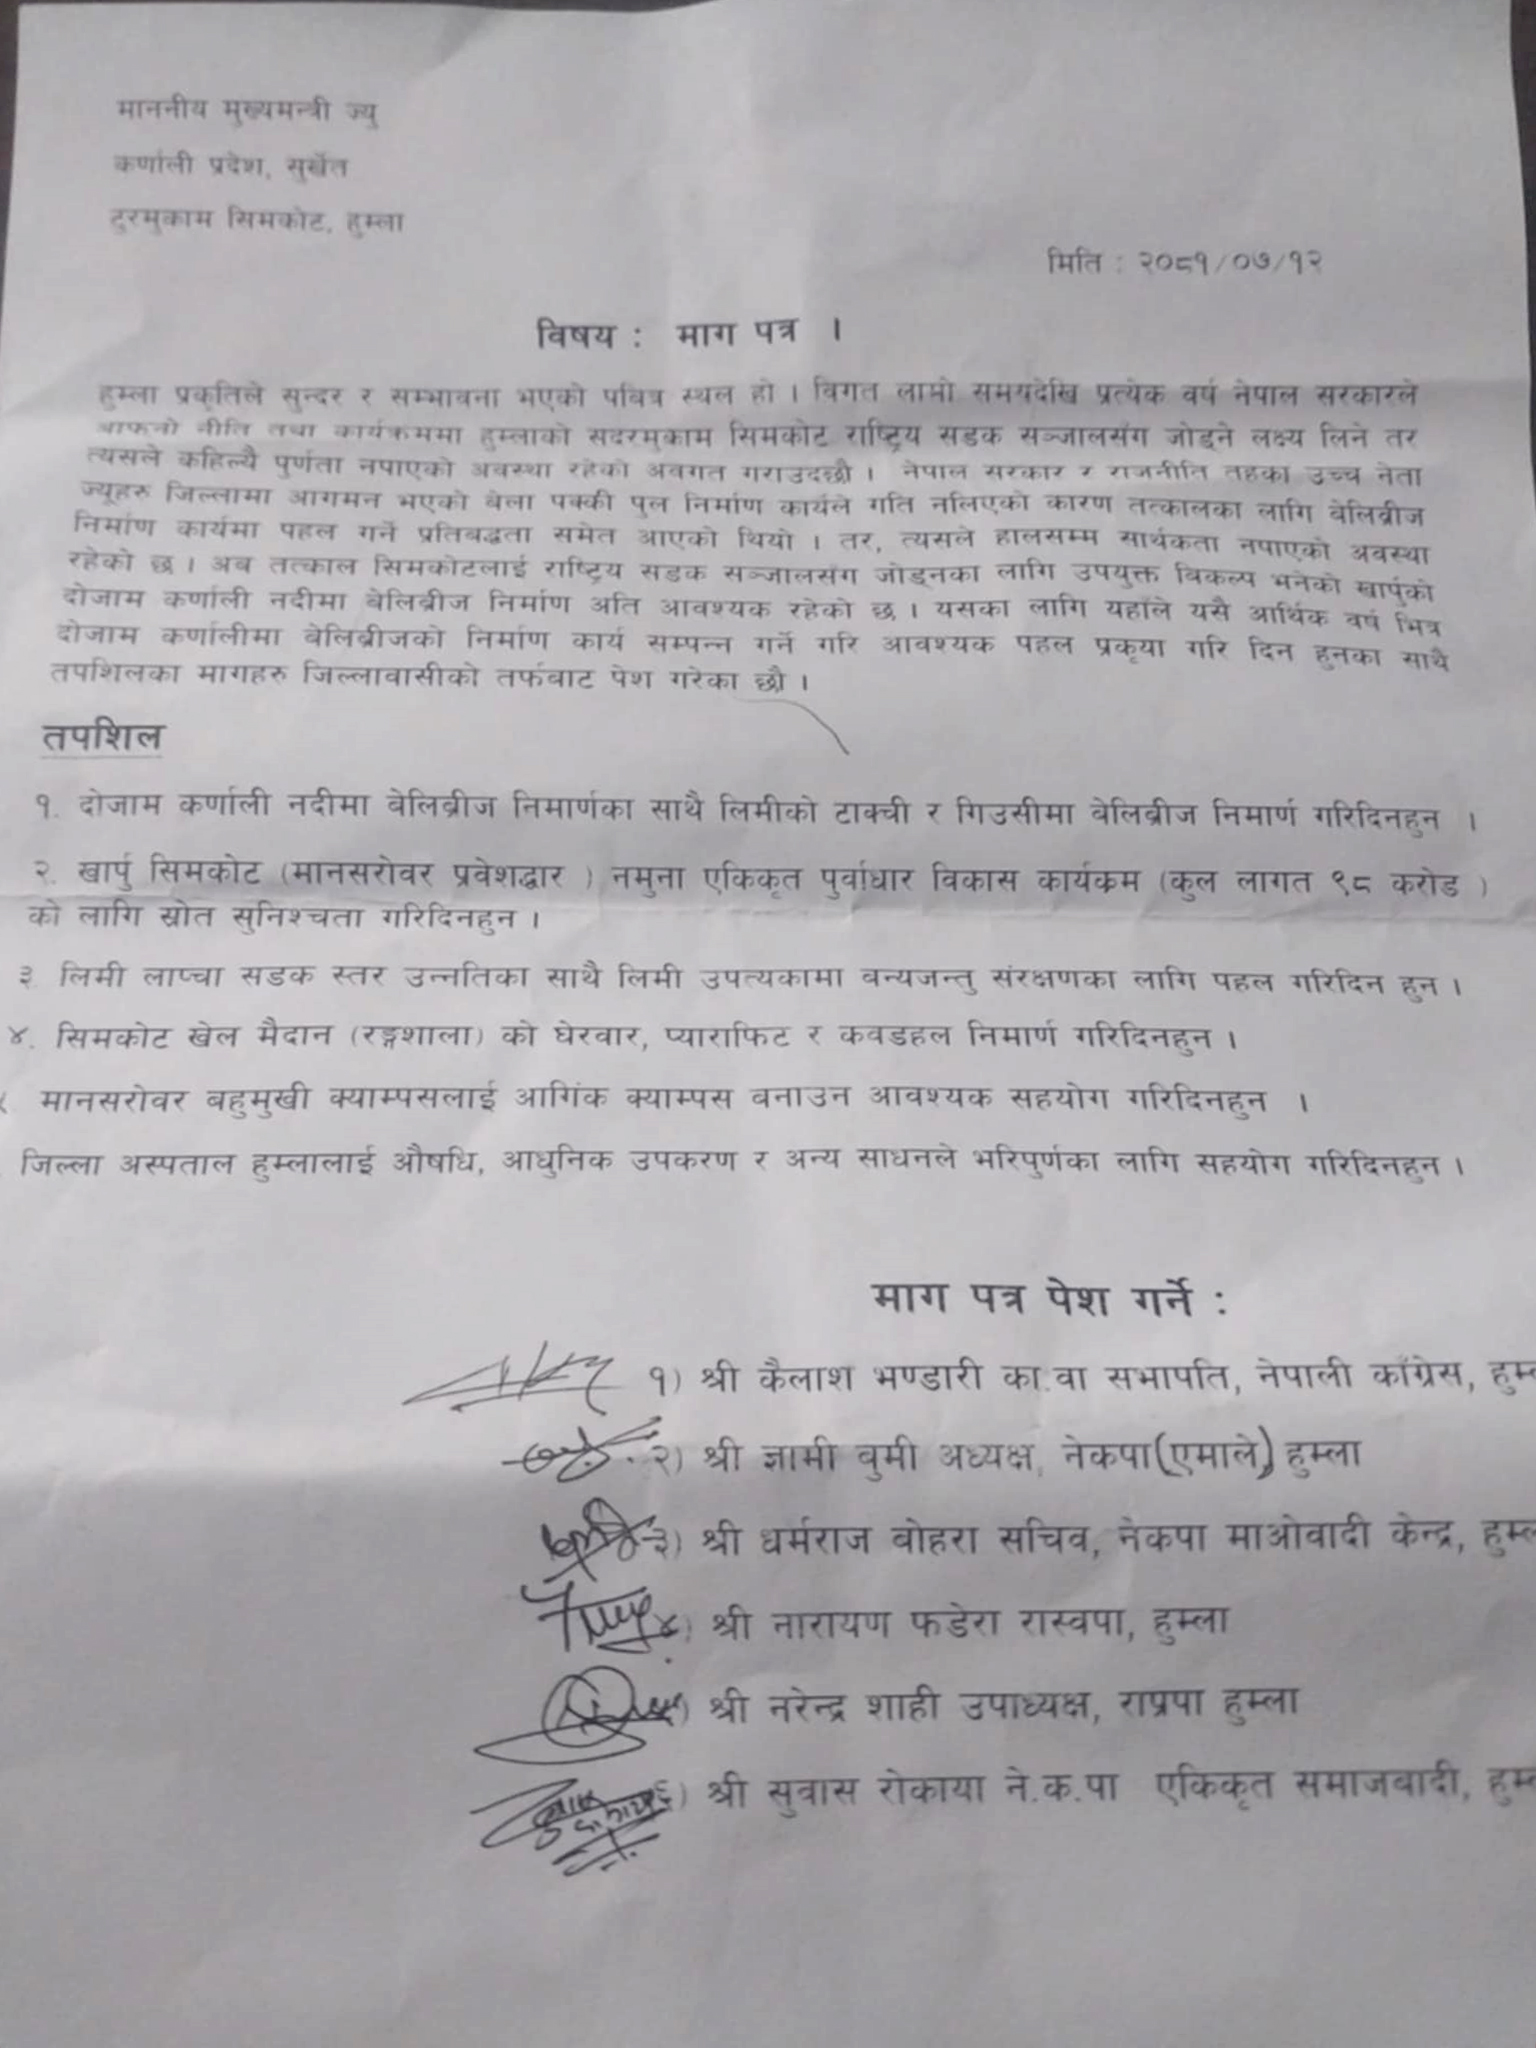 माननीय मुख्यमन्त्री ज्यु
कर्णाली प्रदेश, सुर्खेत
टुरमुकाम सिमकोट, हुम्ला
मिति : २०८१/०७/१२
विषय : माग पत्र ।
हुम्ला प्रकृतिले सुन्दर र सम्भावना भएको पवित्र स्थल हो । विगत लामो समयदेखि प्रत्येक वर्ष नेपाल सरकारले
आफनो नीति तथा कार्यक्रममा हुम्लाको सदरमुकाम सिमकोट राष्ट्रिय सडक सञ्जालसंग जोड्ने लक्ष्य लिने तर
त्यसले कहिल्यै पुर्णता नपाएको अवस्था रहेको अवगत गराउदछौ । नेपाल सरकार र राजनीति तहका उच्च नेता
ज्यूहरु जिल्लामा आगमन भएको बेला पक्की पुल निर्माण कार्यले गति नलिएको कारण तत्कालका लागि बेलिब्रीज
निर्माण कार्यमा पहल गर्ने प्रतिबद्धता समेत आएको थियो । तर, त्यसले हालसम्म सार्थकता नपाएको अवस्था
रहेको छ । अब तत्काल सिमकोटलाई राष्ट्रिय सडक सञ्जालसंग जोड्नका लागि उपयुक्त विकल्प भनेको खार्पुको
दोजाम कर्णाली नदीमा बेलिब्रीज निर्माण अति आवश्यक रहेको छ । यसका लागि यहाँले यसै आर्थिक वर्ष भित्र
दोजाम कर्णालीमा बेलिब्रीजको निर्माण कार्य सम्पन्न गर्ने गरि आवश्यक पहल प्रकृया गरि दिन हुनका साथै
तपशिलका मागहरु जिल्लावासीको तर्फबाट पेश गरेका छौ ।
तपशिल
१. दोजाम कर्णाली नदीमा बेलिब्रीज निमार्णका साथै लिमीको टाक्ची र गिउसीमा बेलिब्रीज निमार्ण गरिदिनहुन ।
२. खार्पु सिमकोट (मानसरोवर प्रवेशद्धार ) नमुना एकिकृत पुर्वाधार विकास कार्यक्रम (कुल लागत ९८ करोड )
को लागि स्रोत सुनिश्चता गरिदिनहुन ।
३ लिमी लाप्चा सडक स्तर उन्नतिका साथै लिमी उपत्यकामा वन्यजन्तु संरक्षणका लागि पहल गरिदिन हुन ।
४. सिमकोट खेल मैदान (रङ्गशाला) को घेरवार, प्याराफिट र कवडहल निमार्ण गरिदिनहुन ।
मानसरोवर बहुमुखी क्याम्पसलाई आगिंक क्याम्पस बनाउन आवश्यक सहयोग गरिदिनहुन ।
जिल्ला अस्पताल हुम्लालाई औषधि, आधुनिक उपकरण र अन्य साधनले भरिपुर्णका लागि सहयोग गरिदिनहुन ।
माग पत्र पेश गर्ने :
१) श्री कैलाश भण्डारी का.वा सभापति, नेपाली काँग्रेस,
२) श्री ज्ञामी वुमी अध्यक्ष, नेकपा(एमाले) हुम्ला
३) श्री धर्मराज वोहरा सचिव, नेकपा माओवादी केन्द्र,
४) श्री नारायण फडेरा रास्वपा, हुम्ला
५) श्री नरेन्द्र शाही उपाध्यक्ष, राप्रपा हुम्ला
६) श्री सुवास रोकाया ने.क.पा एकिकृत समाजवादी,